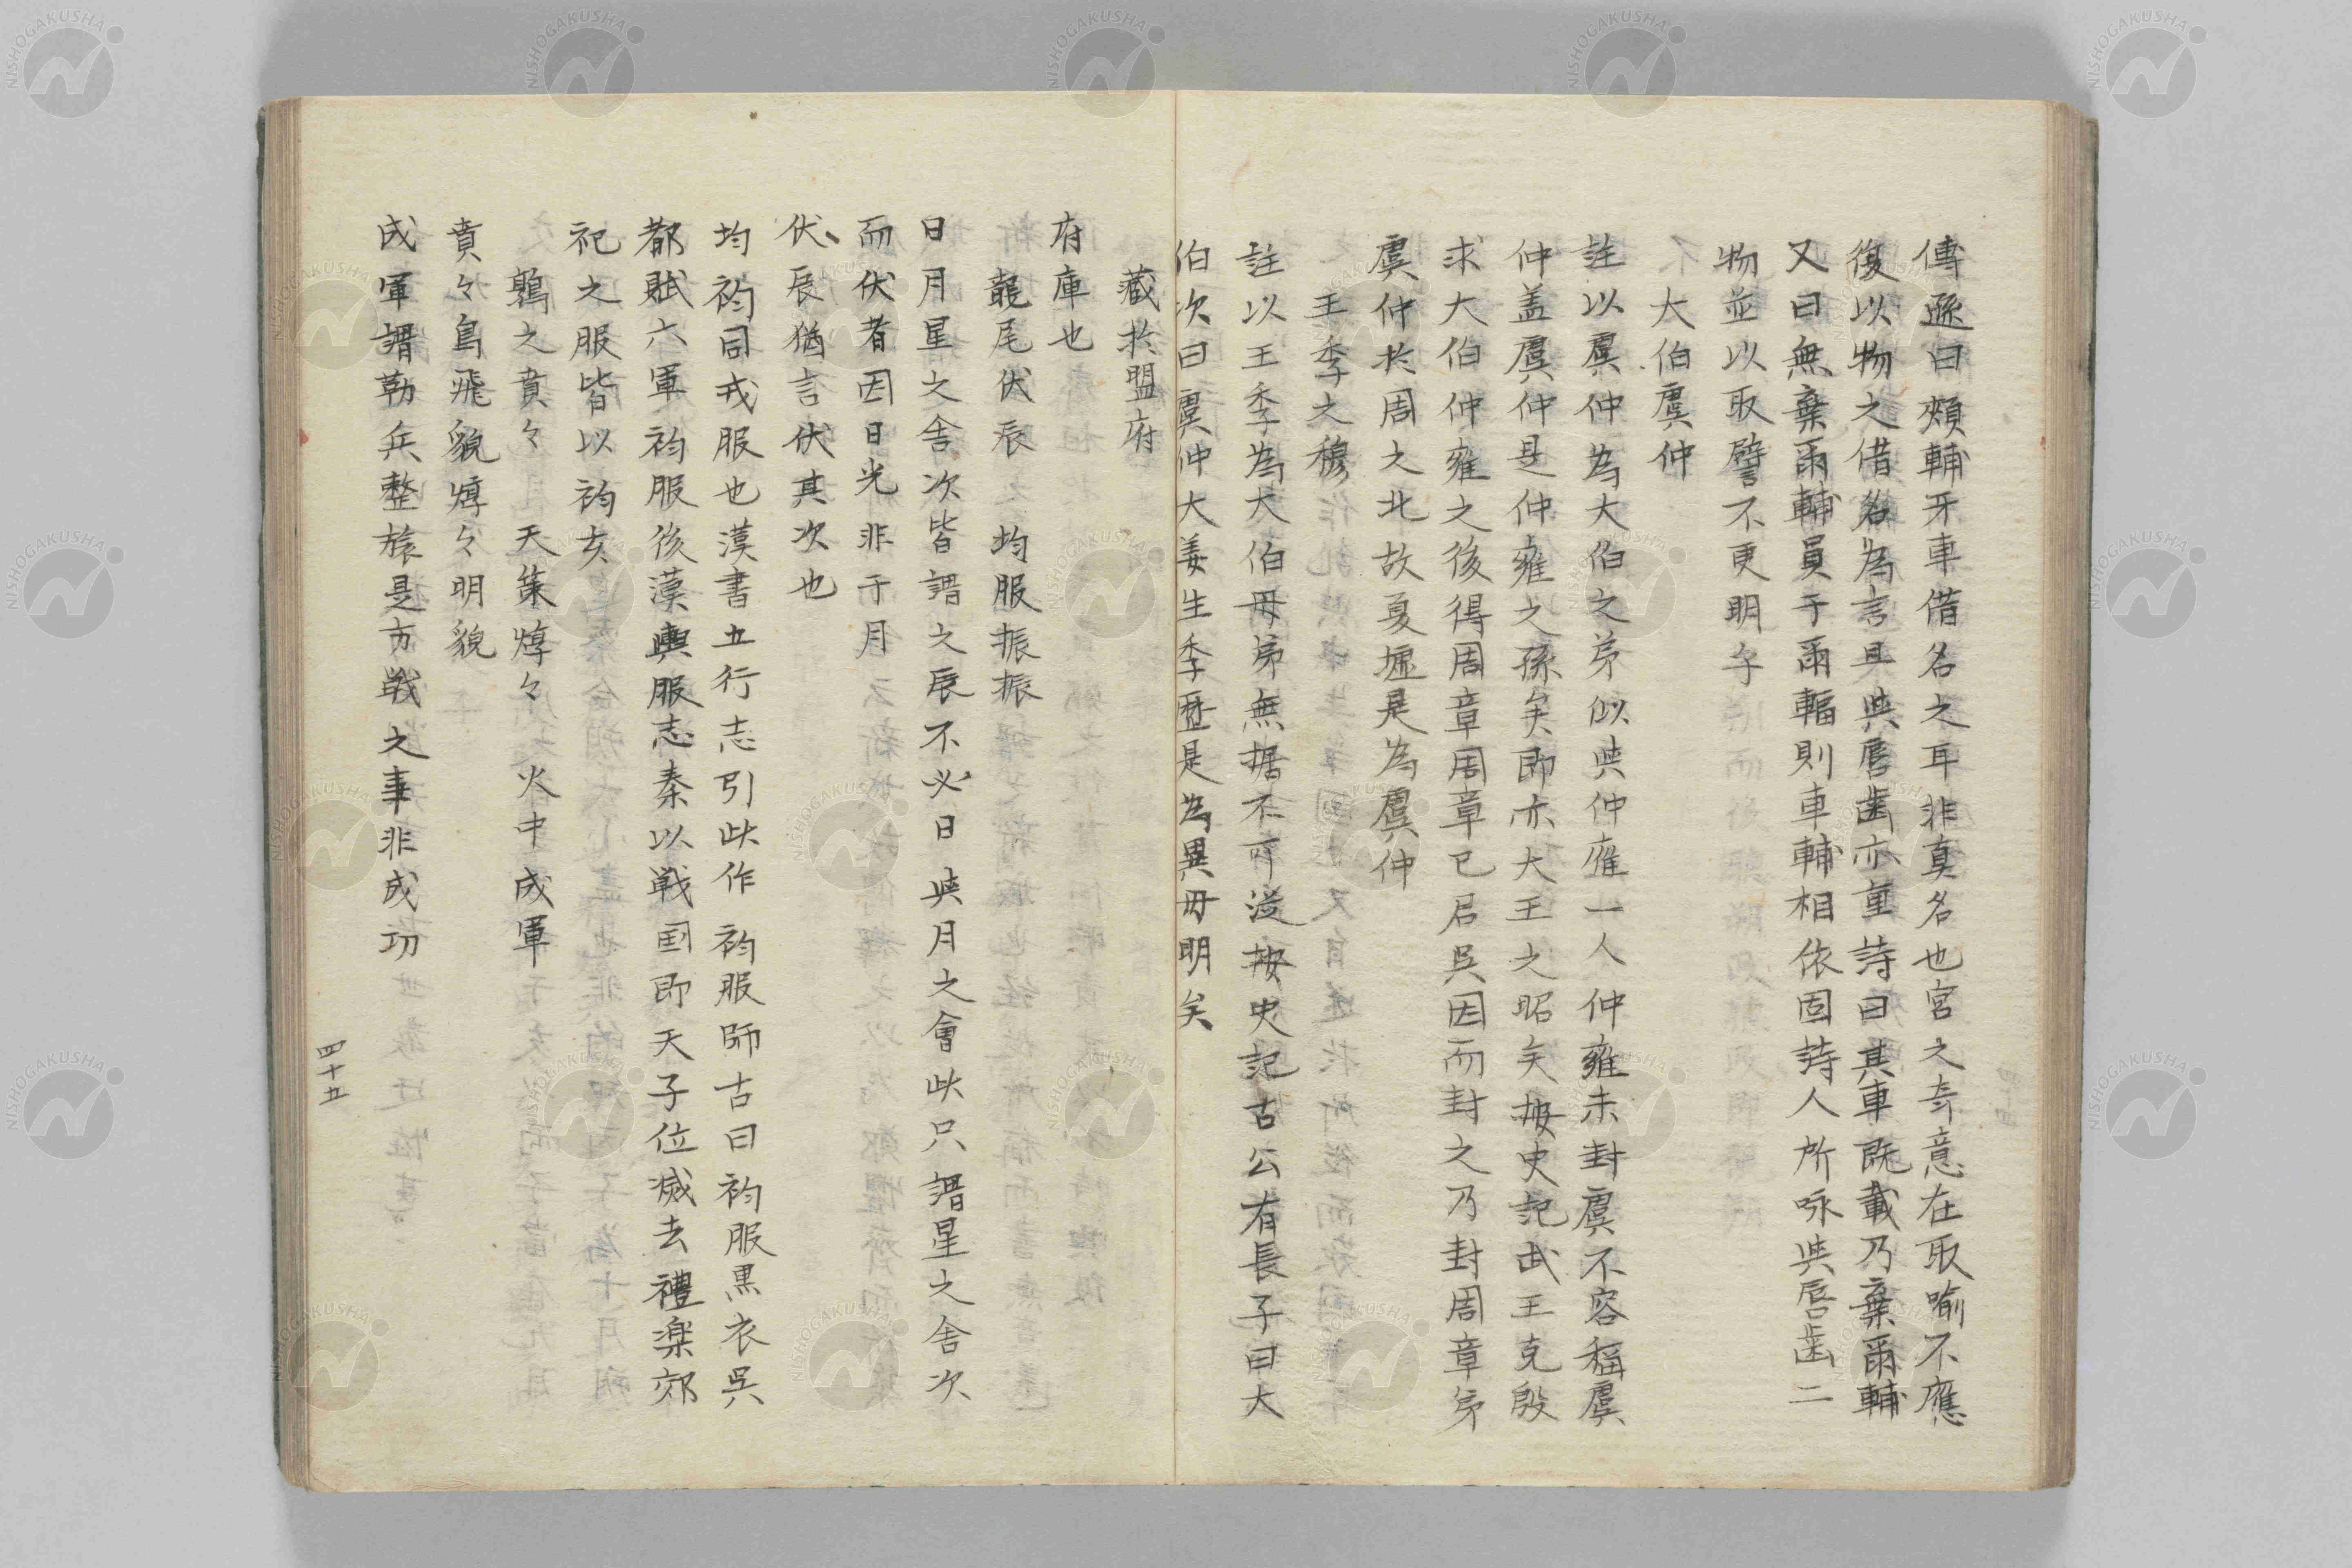 傳遜曰頰輔牙車借名之耳非真名也宮之奇意在取喻不應
復以物之借名為言且與唇歯亦重詩曰其車既載乃棄爾輔
又曰無棄爾輔員于爾輻則車輔相依固詩人所咏與唇歯二
物並以取譬不更明乎
大伯虞仲
註以虞仲為大伯之弟似與仲雍一人仲雍未封虞不容稱虞
仲盖虞仲是仲雍之孫矣即亦大王之昭矣按史記武王克殷
求大伯仲雍之後得周章周章已居吳因而封之乃封周章弟
虞仲於周之北故夏墟是為虞仲
王季之穆
註以王季為大伯毋弟無据不可從按史記古公有長子曰大
伯次曰虞仲大姜生季歷是為異毋明矣
藏於盟府
府庫也
龍尾伏辰　均服振振
日月星之舍次皆謂之辰不必日與月之會此只謂星之舍次
而伏者因日光非于月
伏辰猶言伏其次也
均袀同戎服也漢書五行志引此作袀服師古曰袀服黒衣吳
都賦六軍袀服後漢輿服志秦以戦国即天子位滅去禮楽郊
祀之服皆以袀玄
鶉之賁々　天策焞々　火中成軍
賁々鳥飛貌焞々明貌
成軍謂勒兵整旅是方戦之事非成功
四十五